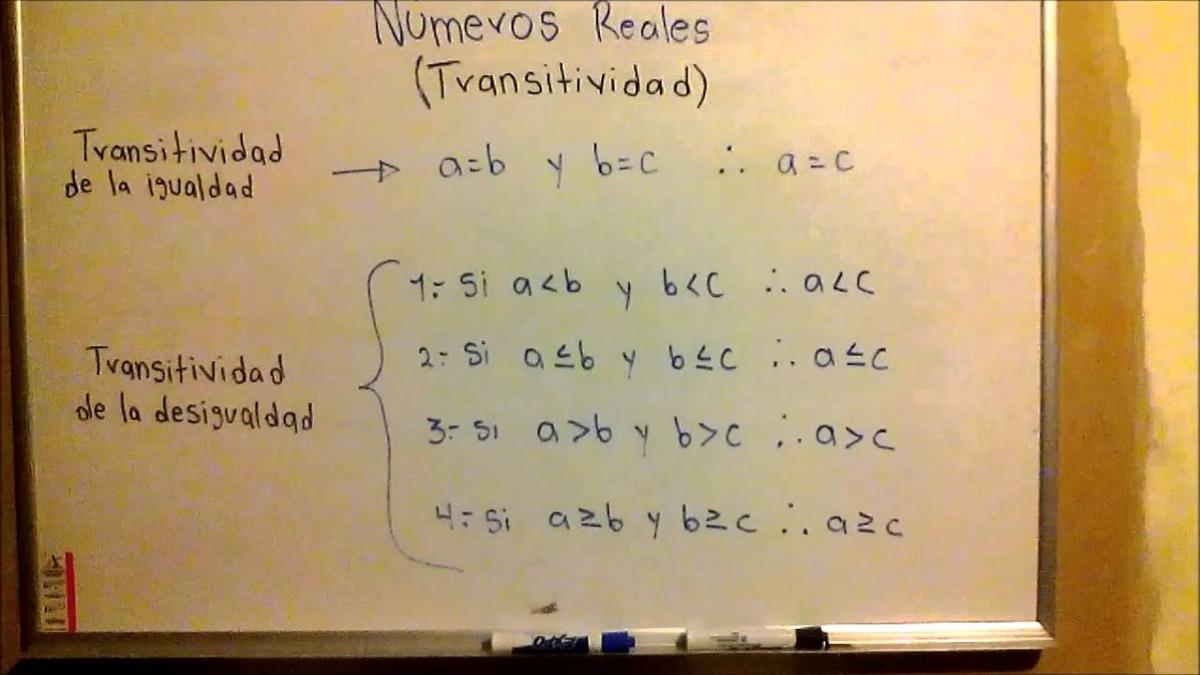 Números Reales
(Transitividad)
Transitividad
de la igualdad
a=b y b=c ∴ a=c
Transitividad
de la desigualdad
1.- Si a<b y b<c ∴ a<c
2.- Si a≤b y b≤c ∴ a≤c
3.- Si a>b y b>c ∴ a>c
4.- Si a≥b y b≥c ∴ a≥c
EXPO